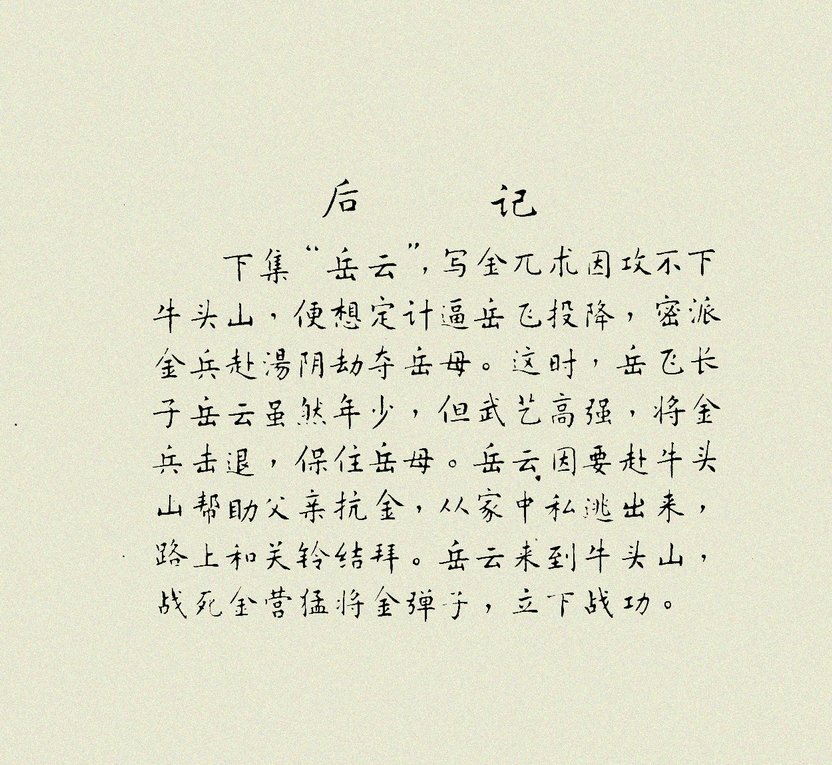 后记
下集“岳云”，写金兀术因攻不下
牛头山，便想定计逼岳飞投降，密派
金兵赴湯阴劫夺岳母。这时，岳飞长
子岳云虽然年少，但武艺高强，将金
兵击退，保住岳母。岳云因要赴牛头
山帮助父亲抗金，从家中私逃出来，
路上和关铃结拜。岳云来到牛头山，
战死金营猛将金弹子，立下战功。